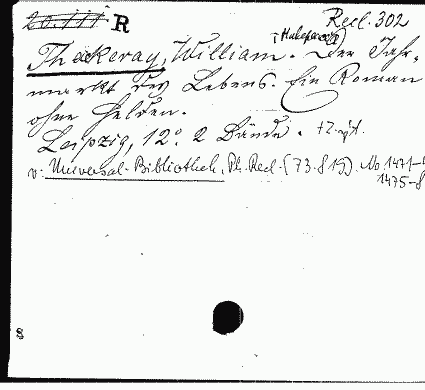 20.111 R Recl. 302
Thackeray, William Makepeace. Der Jahr-
markt des Lebens. Ein Roman
ohne Helden.
Leipzig, 12°. 2 Bände.
v: Universal-Bibliothek, Ph. Recl. (73.819). No 1471-
1475-8